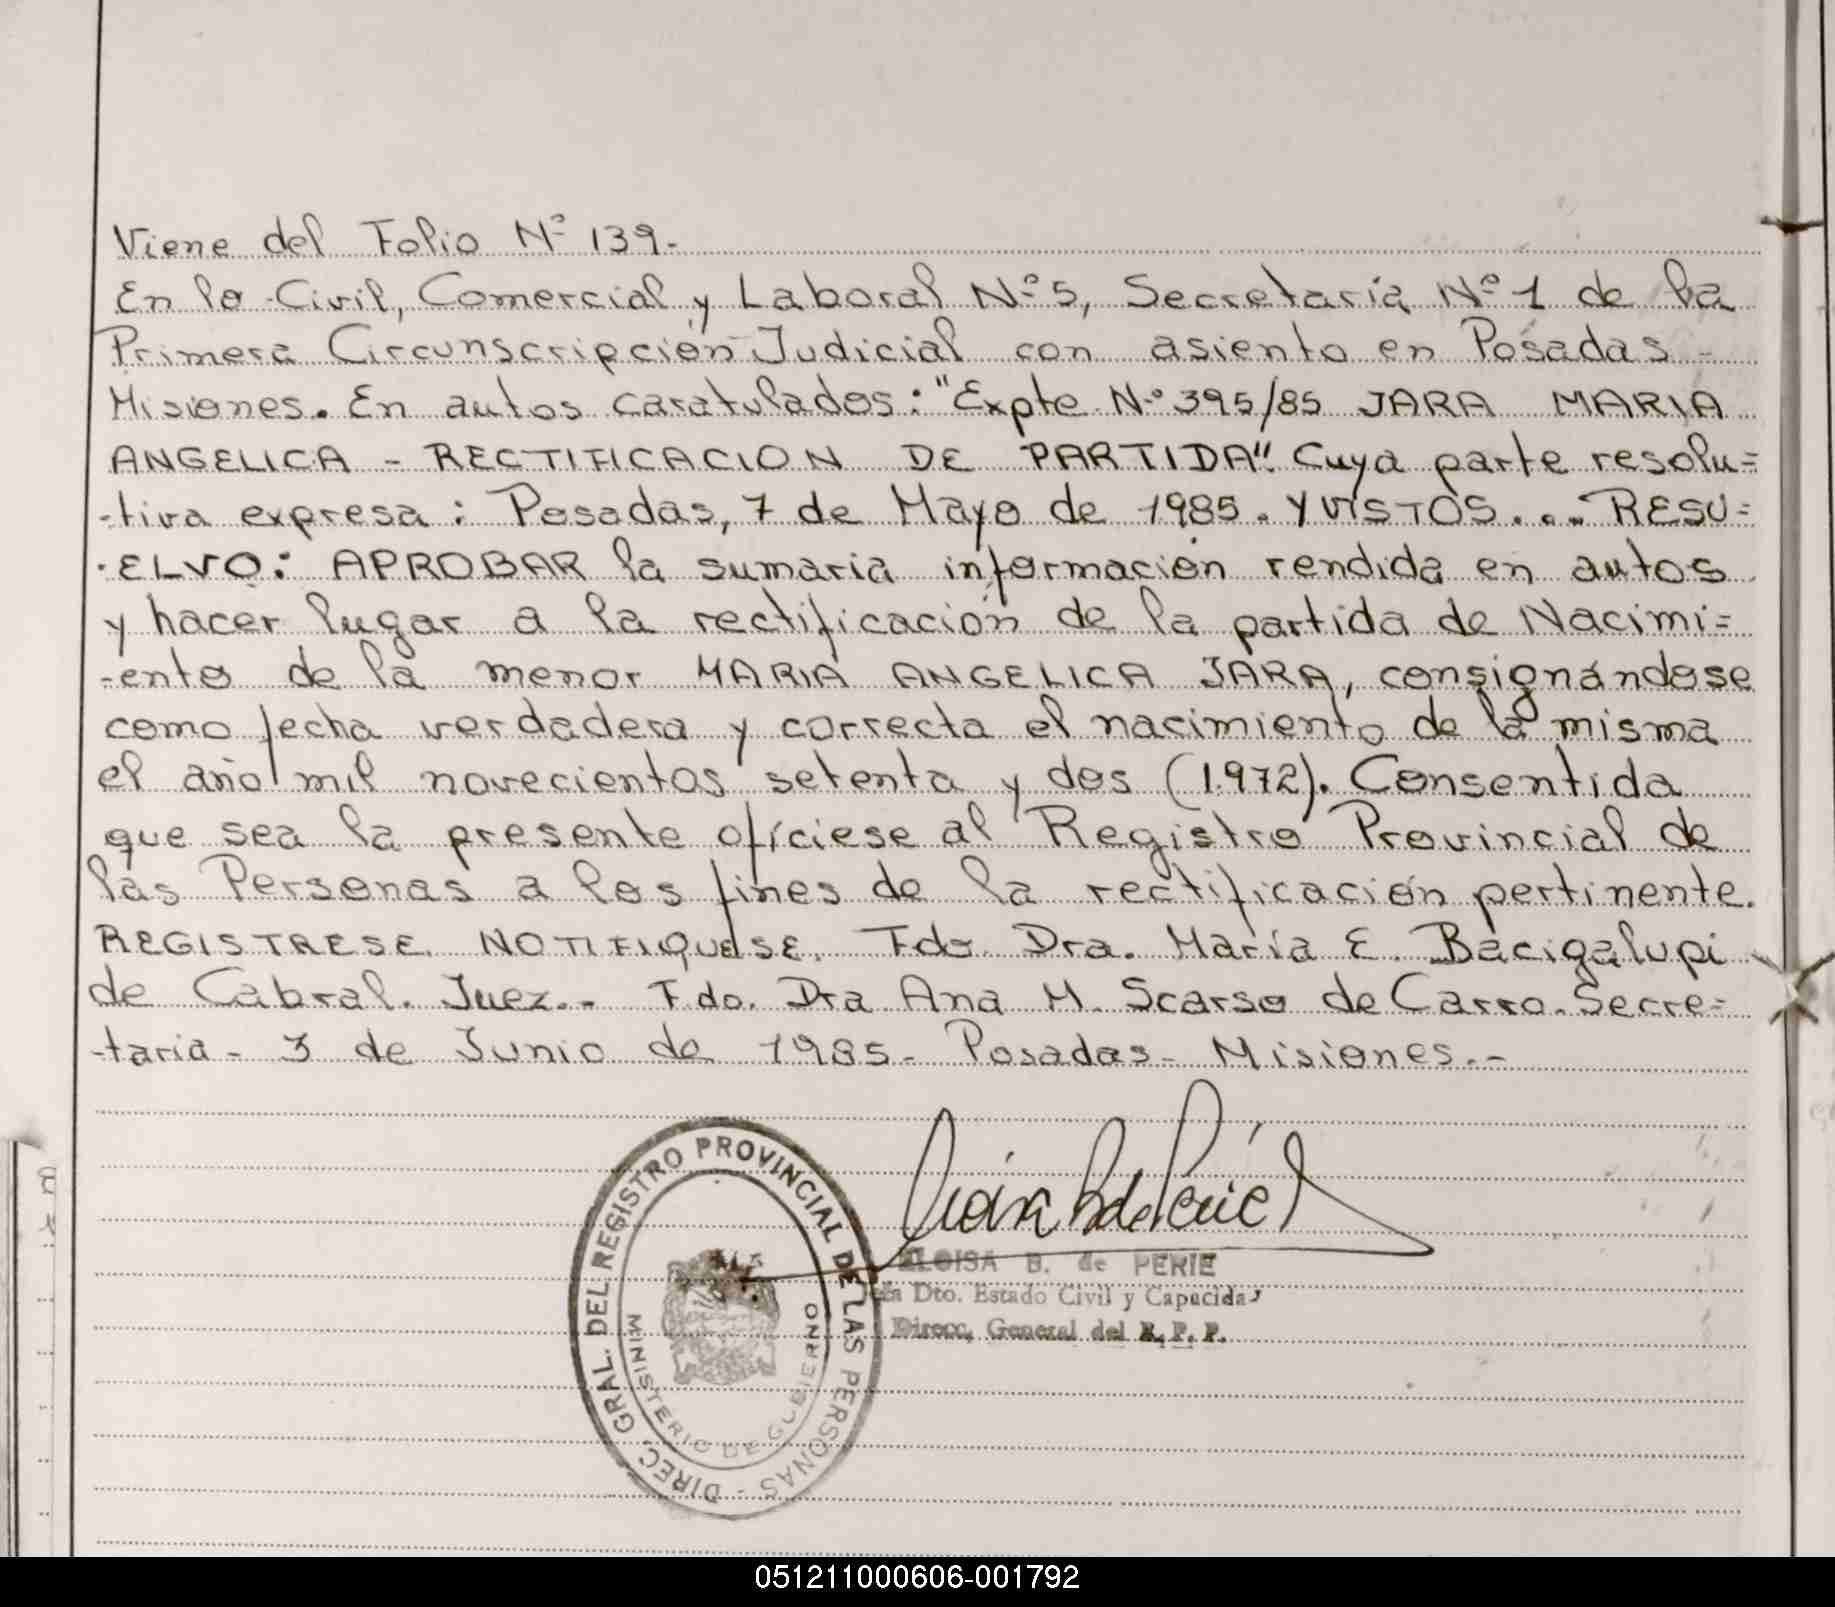 Viene del Folio Nº 139.-
En lo Civil, Comercial y Laboral Nº 5, Secretaría Nº 1 de la
Primera Circunscripción Judicial con asiento en Posadas -
Misiones. En autos caratulados: "Expte Nº 395/85 JARA MARIA
ANGELICA - RECTIFICACION DE PARTIDA". Cuya parte resolu=
-tiva expresa: Posadas, 7 de Mayo de 1985. Y VISTOS... RESU=
-ELVO: APROBAR la sumaria información rendida en autos
y hacer lugar a la rectificación de la partida de Nacimi=
-ento de la menor MARIA ANGELICA JARA, consignándose
como fecha verdadera y correcta el nacimiento de la misma
el año mil novecientos setenta y dos (1.972). Consentida
que sea la presente ofíciese al Registro Provincial de
las Personas a los fines de la rectificación pertinente.
REGISTRESE. NOTIFIQUESE. Fdo. Dra. María E. Bacigalupi
de Cabral. Juez.- Fdo. Dra Ana M. Scarso de Carro. Secre=
-taria - 3 de Junio de 1985 - Posadas - Misiones.-
DIREC. GRAL. DEL REGISTRO PROVINCIAL DE LAS PERSONAS -
MINISTERIO DE GOBIERNO
ELOISA B. de PERIE
Dto. Estado Civil y Capacidad
Direcc. General del R. P. P.
051211000606-001792